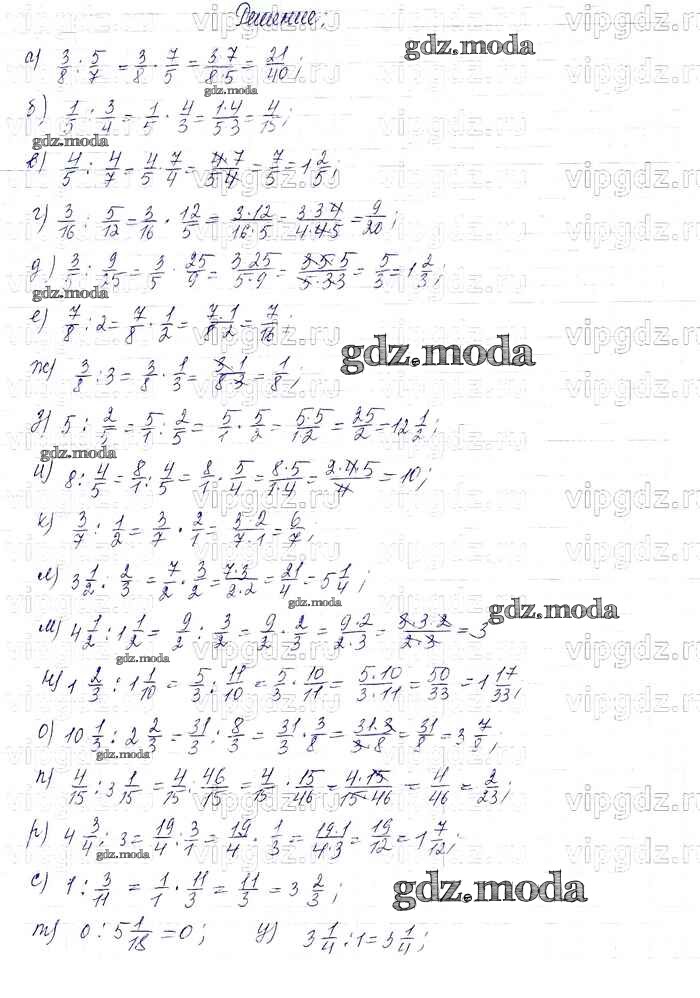 Решение;
а) 3/8 : 5/7 = 3/8 · 7/5 = 3·7/8·5 = 21/40;
б) 1/5 : 3/4 = 1/5 · 4/3 = 1·4/5·3 = 4/15;
в) 4/5 : 4/7 = 4/5 · 7/4 = 4·7/5·4 = 7/5 = 1 2/5;
г) 3/16 : 5/12 = 3/16 · 12/5 = 3·12/16·5 = 3·3·4/4·4·5 = 9/20;
д) 3/5 : 9/25 = 3/5 · 25/9 = 3·25/5·9 = 3·5·5/5·3·3 = 5/3 = 1 2/3;
е) 7/8 : 2 = 7/8 · 1/2 = 7·1/8·2 = 7/16;
ж) 3/8 : 3 = 3/8 · 1/3 = 3·1/8·3 = 1/8;
з) 5 : 2/5 = 5/1 : 2/5 = 5/1 · 5/2 = 5·5/1·2 = 25/2 = 12 1/2;
и) 8 : 4/5 = 8/1 : 4/5 = 8/1 · 5/4 = 8·5/1·4 = 2·4·5/4 = 10;
к) 3/7 : 1/2 = 3/7 · 2/1 = 3·2/7·1 = 6/7;
л) 3 1/2 : 2/3 = 7/2 · 3/2 = 7·3/2·2 = 21/4 = 5 1/4;
м) 4 1/2 : 1 1/2 = 9/2 : 3/2 = 9/2 · 2/3 = 9·2/2·3 = 3·3·2/2·3 = 3
н) 1 2/3 : 1 1/10 = 5/3 : 11/10 = 5/3 · 10/11 = 5·10/3·11 = 50/33 = 1 17/33;
о) 10 1/3 : 2 2/3 = 31/3 : 8/3 = 31/3 · 3/8 = 31·3/3·8 = 31/8 = 3 7/8;
п) 4/15 : 3 1/15 = 4/15 · 46/15 = 4/15 · 15/46 = 4·15/15·46 = 4/46 = 2/23;
р) 4 3/4 : 3 = 19/4 : 3/1 = 19/4 · 1/3 = 19·1/4·3 = 19/12 = 1 7/12;
с) 1 : 3/11 = 1/1 · 11/3 = 11/3 = 3 2/3;
т) 0 : 5 1/18 = 0; у) 3 1/4 : 1 = 3 1/4;
gdz.moda
vipgdz.ru